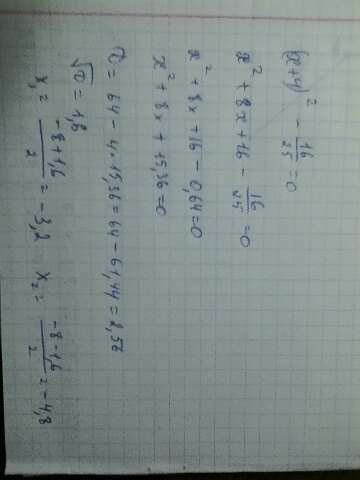 (x+4)² - 16/25 = 0
x² + 8x + 16 - 16/25 = 0
x² + 8x + 16 - 0,64 = 0
x² + 8x + 15,36 = 0
D = 64 - 4·15,36 = 64 - 61,44 = 2,56
√D = 1,6
x₁ = (-8+1,6)/2 = -3,2 x₂ = (-8-1,6)/2 = -4,8